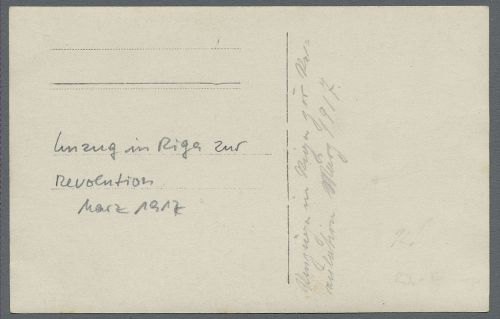 Umzug in Riga zur
Revolution
März 1917
Umzüge in Riga zur Re-
volution März 1917.